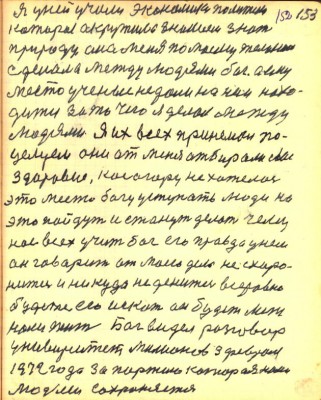 152 153
Я у ней учили экономика политики
которая окружила знамием знат
природу она меня по моему желанию
сделала между людями бог. а ему
место ученые не дали на им нахо-
дити зато чего я делал между
людями Я их всех принемал по-
целуем они от меня отбирали свое
здоровие, кого гору не хотелось
это место богу уступать люди на
это пойдут и станут делат чему
нас всех учит Бог его правда у нем
он говорит от моего дела не схоро-
нитися и никуда не денитися всеровно
будете его искат он будет меж
нами жит Бог видел розговор
университет милионов 3 февраля
1979 года За партию которая нами
людми сохраняется